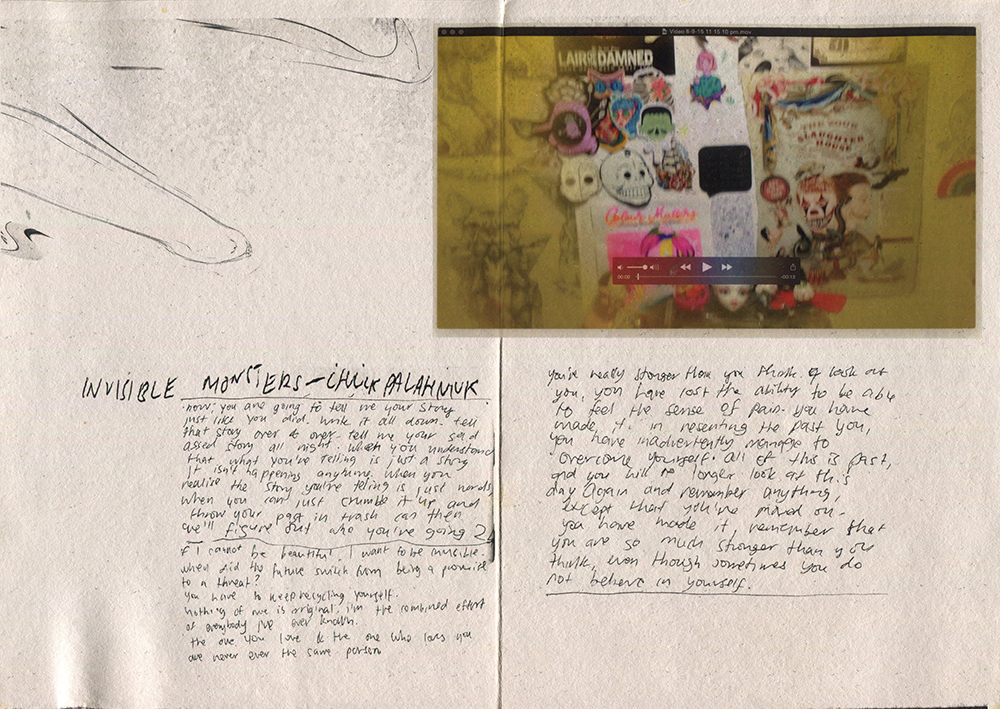 Video 8-9-15 11 15 10 pm.mov
LAIR DAMNED
THE
SLAUGHTER
HOUSE
00:00
-00:13
INVISIBLE MONSTERS - CHUCK PALAHNIUK
now, you are going to tell me your story
just like you did. write it all down. tell
that story over & over. tell me your sad
assed story all night. when you understand
that what you're telling is just a story
It isn't happening anymore, when you
realise the story you're telling is just words,
when you can just crumble it up and
throw your past in trash can then
we'll figure out who you're going 2
if I cannot be beautiful, I want to be invisible.
when did the future switch from being a promise
to a threat?
you have to keep recycling yourself.
nothing of me is original, i'm the combined effort
of everybody I've ever known.
the one you love & the one who loves you
are never ever the same person
you're really stronger than you think. look at
you, you have lost the ability to be able
to feel the sense of pain. you have
made it. in resenting the past you,
you have inadvertently manage to
overcome yourself. all of this is past,
and you will no longer look at this
day again and remember anything,
except that you've moved on.
you have made it, remember that
you are so much stronger than you
think, even though sometimes you do
not believe in yourself.